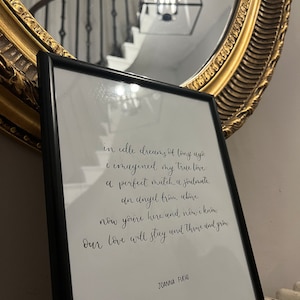 in idle dreams of long ago
i imagined my true love
a perfect match, a soulmate
an angel from above
now you're here and now i know
our love will stay and thrive and grow